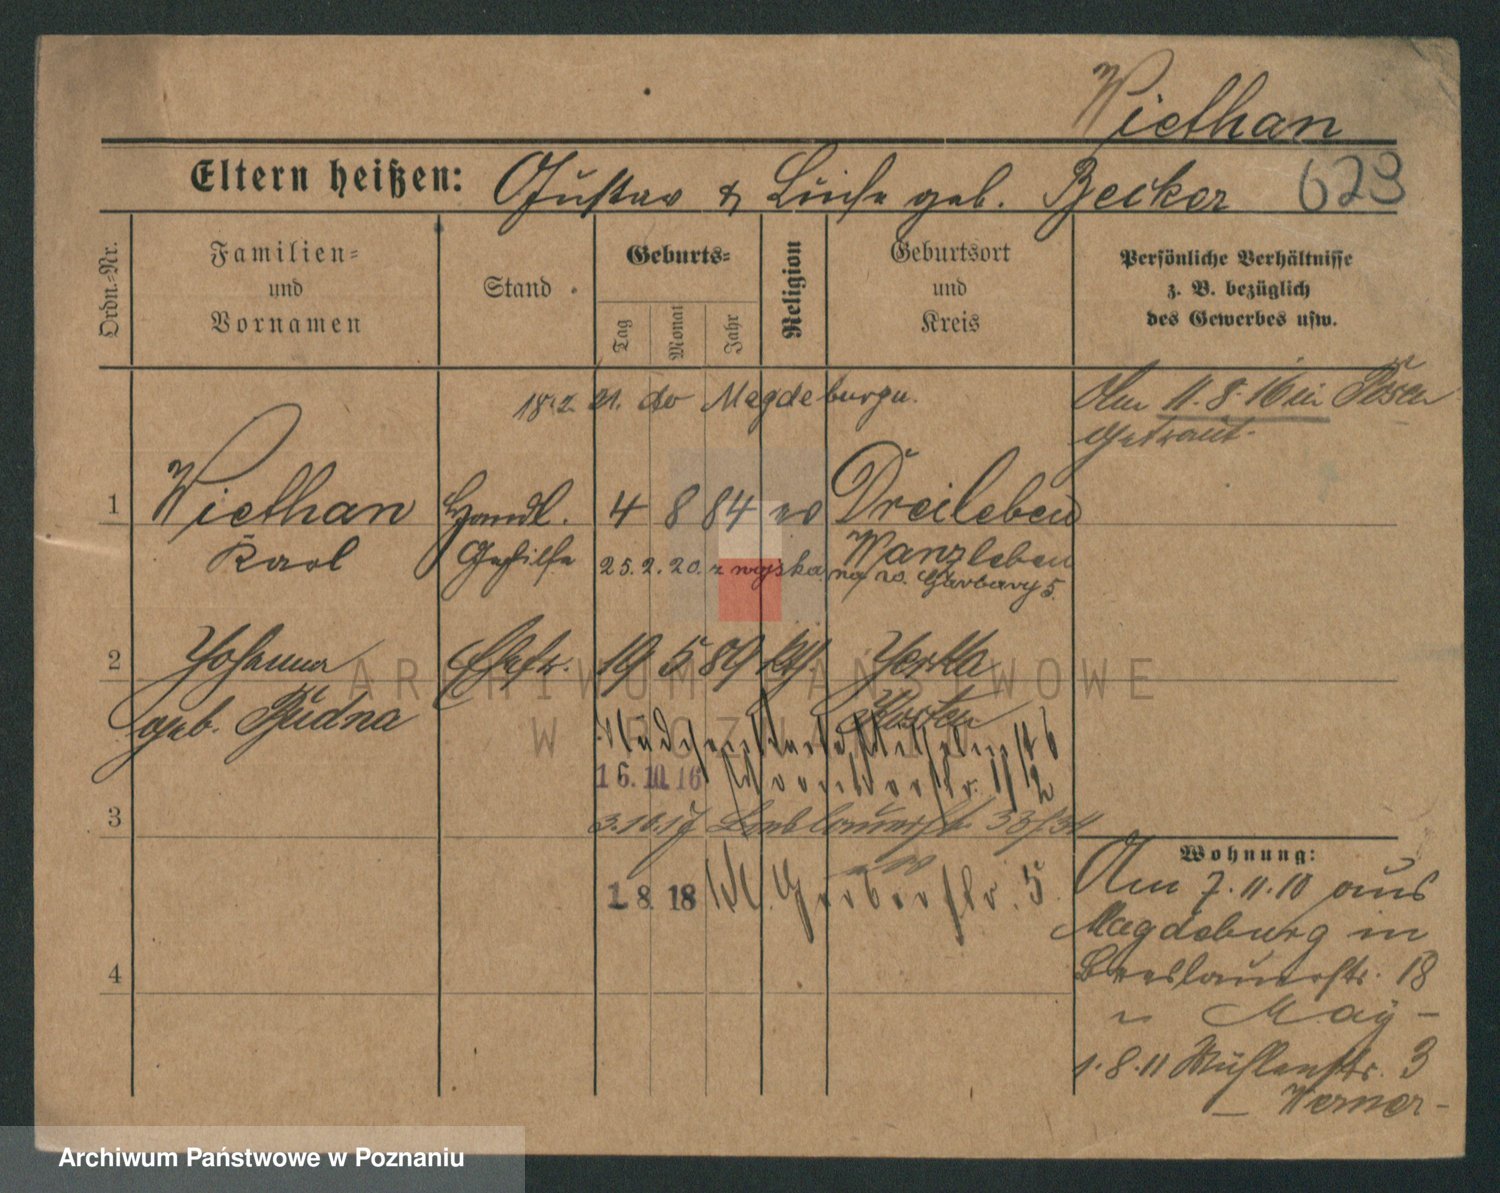 Wiethan
Eltern heißen: Gustav & Luise geb. Becker 623
Ordn.-Nr.
Familien-
und
Vornamen
Stand
Geburts-
Tag
Monat
Jahr
Religion
Geburtsort
und
Kreis
Persönliche Verhältnisse
z. B. bezüglich
des Gewerbes usw.
18.2. 21. do Magdeburgu.
Am 11.8.16 in Posen
getraut.
1 Wiethan Handl. 4 8 84 ev Dreileben
Karl Gehilfe Wanzleben
25.2.20. z wojska na W. Garbary 5.
2 Johanna Ehefr. 19 5 89 kth Yerka
geb. Budna Kosten
16.10.16
3
3.10.17 Breslauerstr 33/34
Wohnung:
1.8.18 Kl. Gerberstr. 5
Am 7.11.10 aus
Magdeburg in
Breslauerstr. 18
4
May -
1.8.11 Mühlenstr. 3
- Werner -
ARCHIWUM PAŃSTWOWE
W POZNANIU
Archiwum Państwowe w Poznaniu